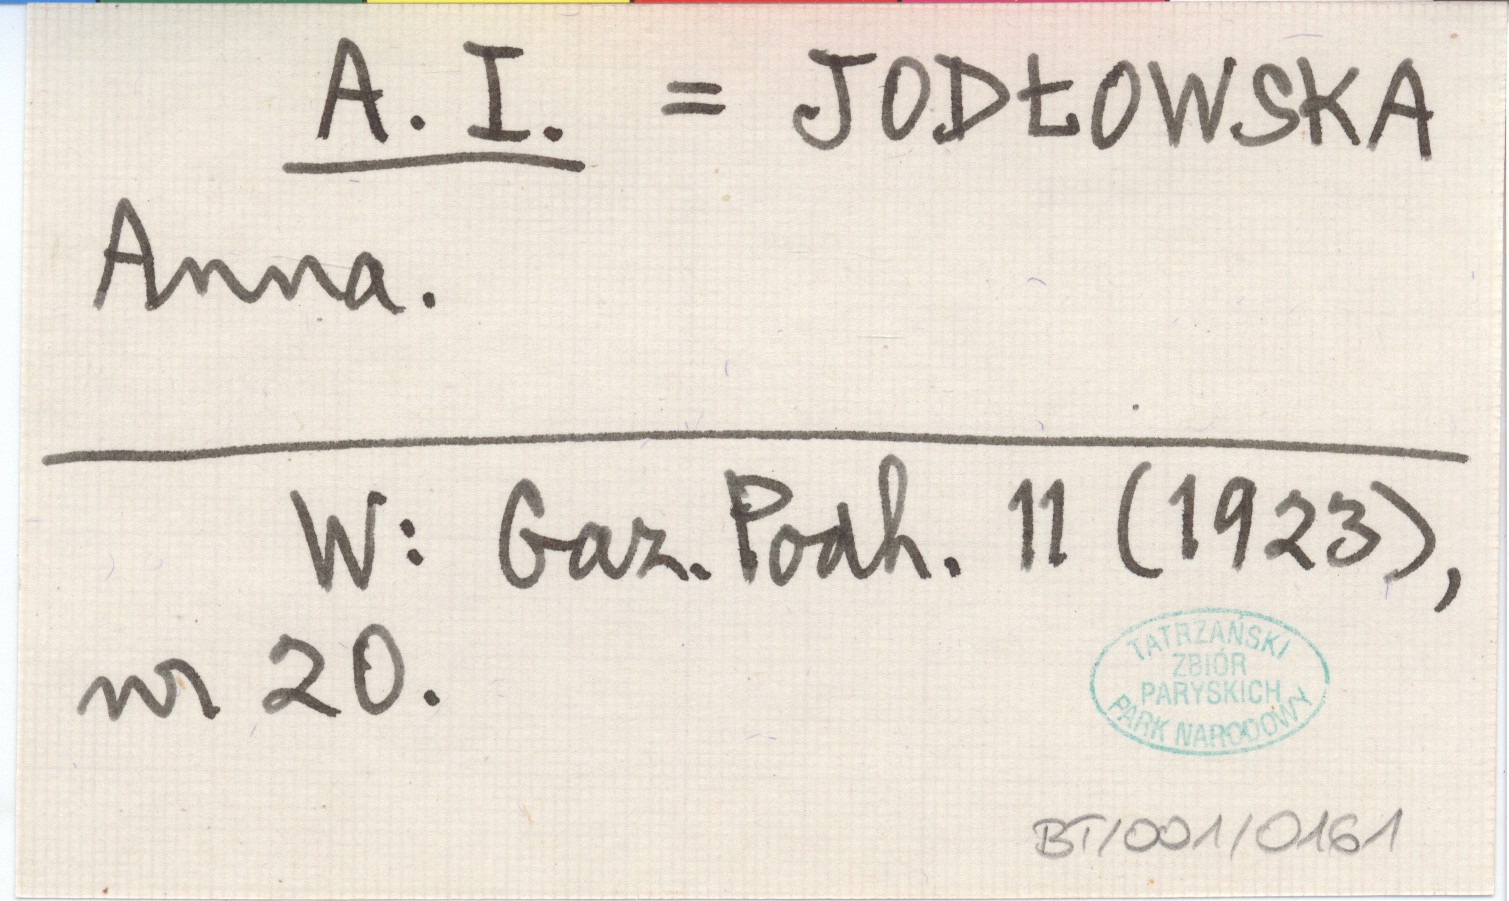 A. I. = JODŁOWSKA
Anna.
W: Gaz. Podh. 11 (1923),
nr 20.
TATRZAŃSKI
ZBIÓR
PARYSKICH
PARK NARODOWY
BT/001/0161